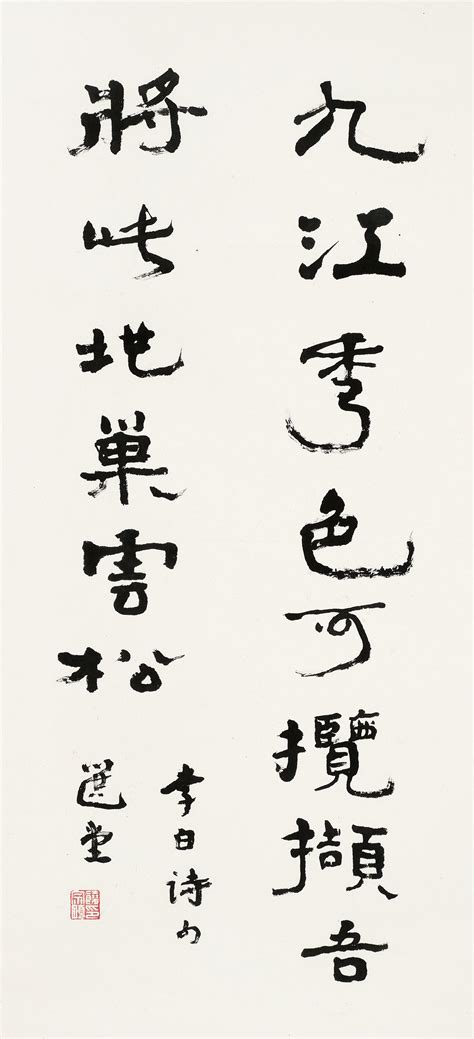 九江秀色可攬擷吾
將此地巢雲松
李白詩句
選堂